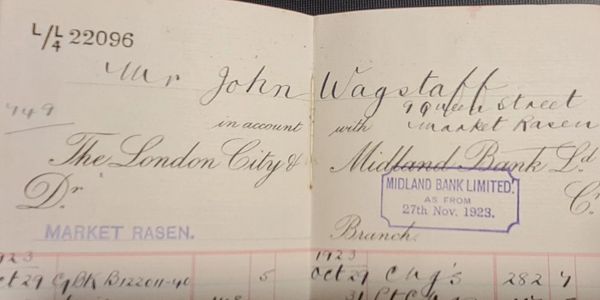 L/L/4 22096
Mr John Wagstaff
9 Queen Street
Market Rasen
749
in account with
The London City & Midland Bank Ld
Dr. Cr.
MIDLAND BANK LIMITED.
AS FROM
27th Nov. 1923.
MARKET RASEN. Branch.
1923 1923
Oct 29 5 Oct 29 282 7